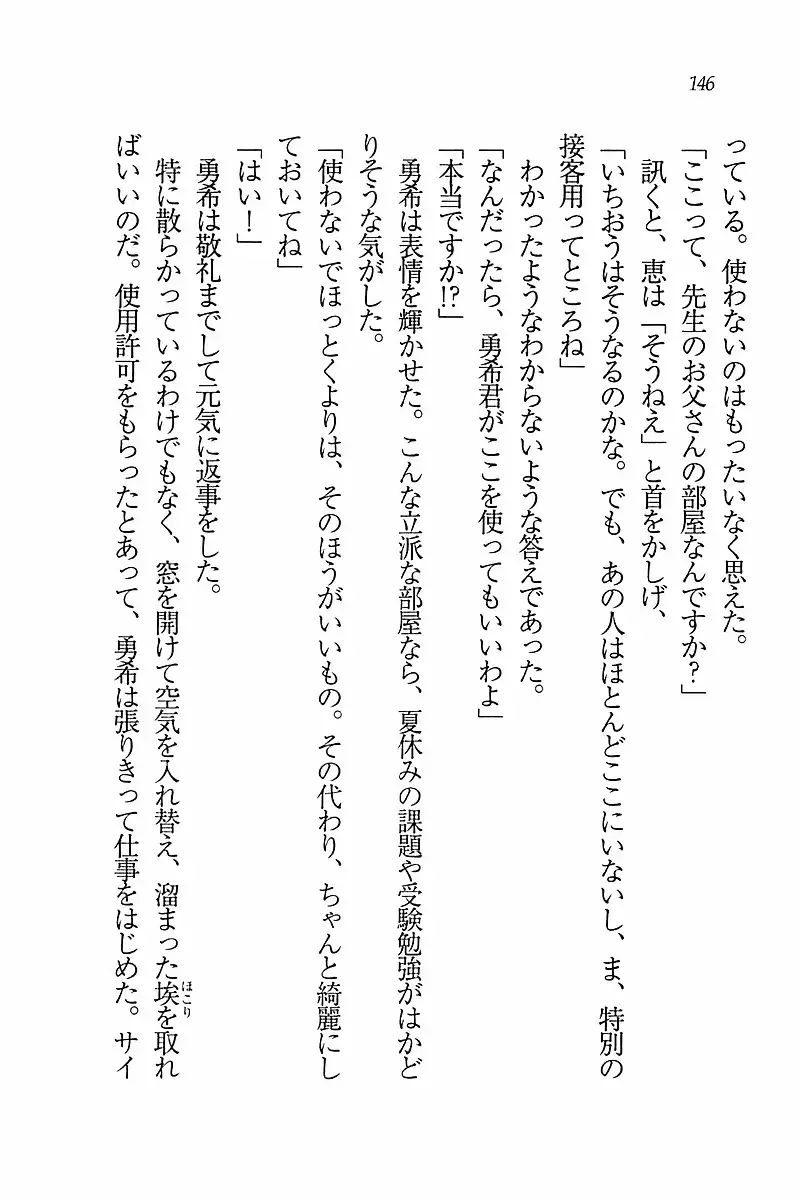 146
っている。使わないのはもったいなく思えた。
「ここって、先生のお父さんの部屋なんですか?」
訊くと、恵は「そうねえ」と首をかしげ、
「いちおうはそうなるのかな。でも、あの人はほとんどここにいないし、ま、特別の
接客用ってところね」
わかったようなわからないような答えであった。
「なんだったら、勇希君がここを使ってもいいわよ」
「本当ですか!?」
勇希は表情を輝かせた。こんな立派な部屋なら、夏休みの課題や受験勉強がはかど
りそうな気がした。
「使わないでほっとくよりは、そのほうがいいもの。その代わり、ちゃんと綺麗にし
ておいてね」
「はい!」
勇希は敬礼までして元気に返事をした。
特に散らかっているわけでもなく、窓を開けて空気を入れ替え、溜まった埃ほこりを取れ
ばいいのだ。使用許可をもらったとあって、勇希は張りきって仕事をはじめた。サイ